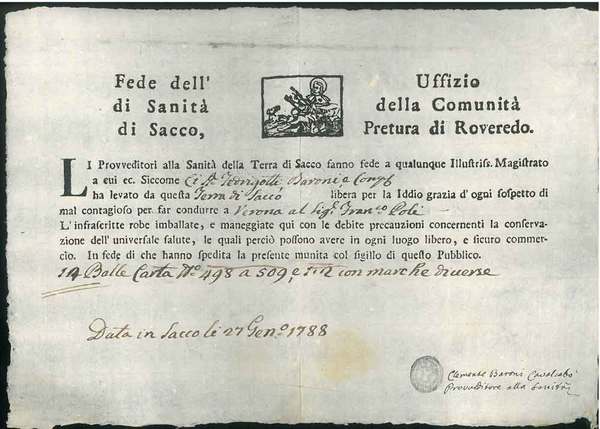 Fede dell' Uffizio
di Sanità della Comunità
di Sacco, Pretura di Roveredo.
LI Provveditori alla Sanità della Terra di Sacco fanno fede a qualunque Illustriss. Magistrato
a cui ec. Siccome Baroni e Comp.
ha levato da questa Terra di Sacco libera per la Iddio grazia d'ogni sospetto di
mal contagioso per far condurre a Verona al Sig. Fran.co Poli
L'infrascritte robe imballate, e maneggiate qui con le debite precauzioni concernenti la conserva-
zione dell'universale salute, le quali perciò possono avere in ogni luogo libero, e sicuro commer-
cio. In fede di che hanno spedita la presente munita col sigillo di questo Pubblico.
14 Balle Carta N.º 498 a 509, e con marche diverse
Data in Sacco li 27 Gen.º 1788
Clemente Baroni Cavalcabò
Provveditore alla Sanità